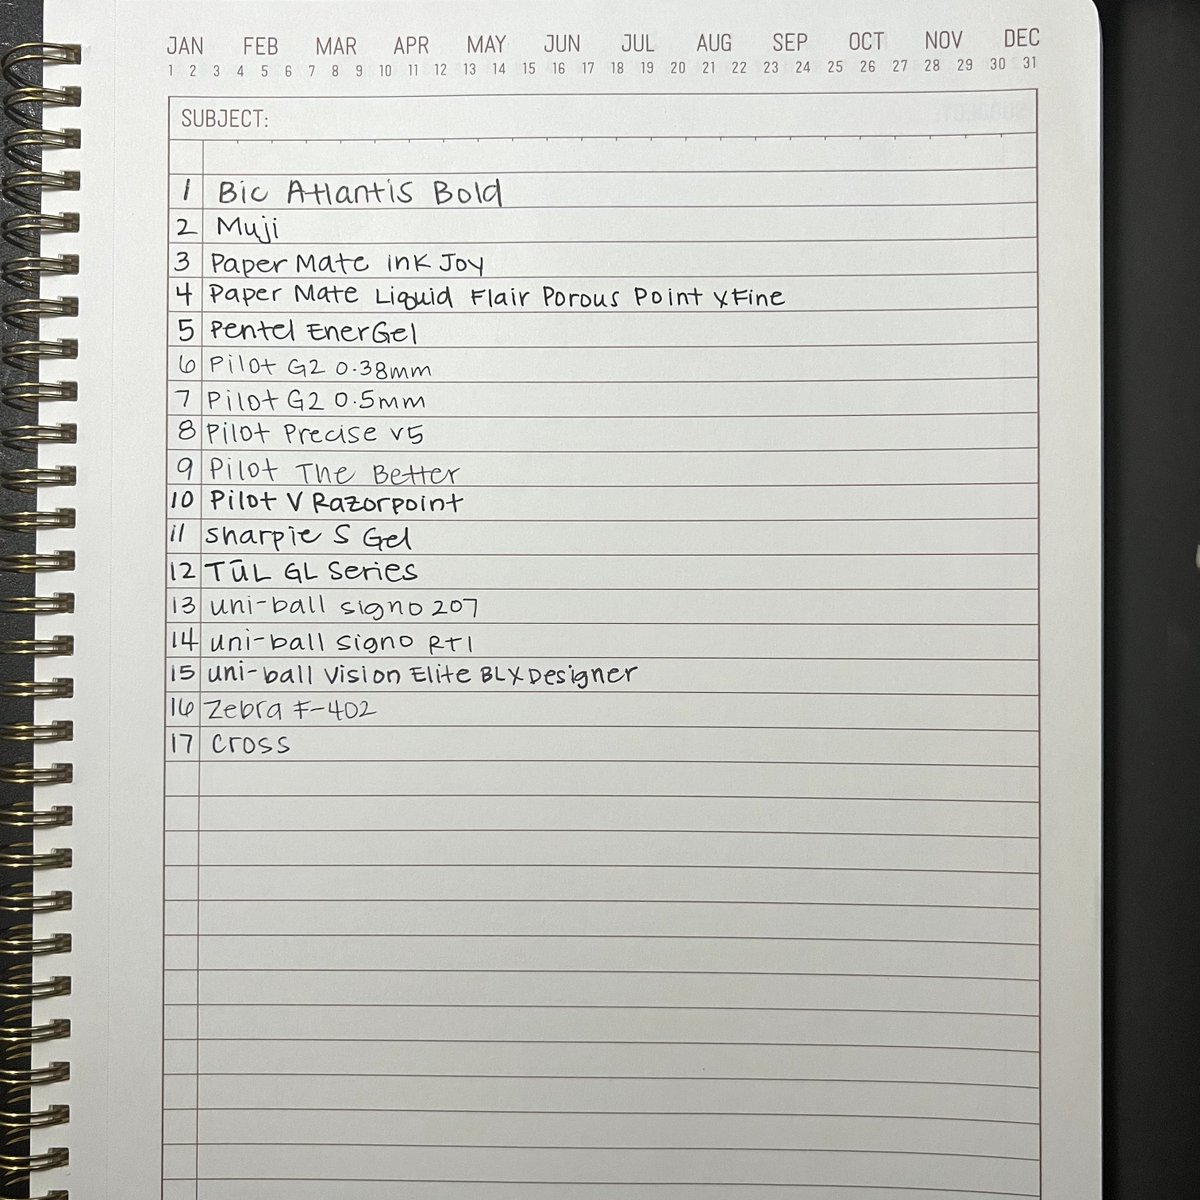 JAN FEB MAR APR MAY JUN JUL AUG SEP OCT NOV DEC
1 2 3 4 5 6 7 8 9 10 11 12 13 14 15 16 17 18 19 20 21 22 23 24 25 26 27 28 29 30 31
SUBJECT:
1 Bic Atlantis Bold
2 Muji
3 Paper Mate Ink Joy
4 Paper Mate Liquid Flair Porous Point XFine
5 Pentel EnerGel
6 Pilot G2 0.38mm
7 Pilot G2 0.5mm
8 Pilot Precise V5
9 Pilot The Better
10 Pilot V Razorpoint
11 Sharpie S Gel
12 TŪL GL Series
13 uni-ball signo 207
14 uni-ball signo RT1
15 uni-ball Vision Elite BLX Designer
16 Zebra F-402
17 Cross